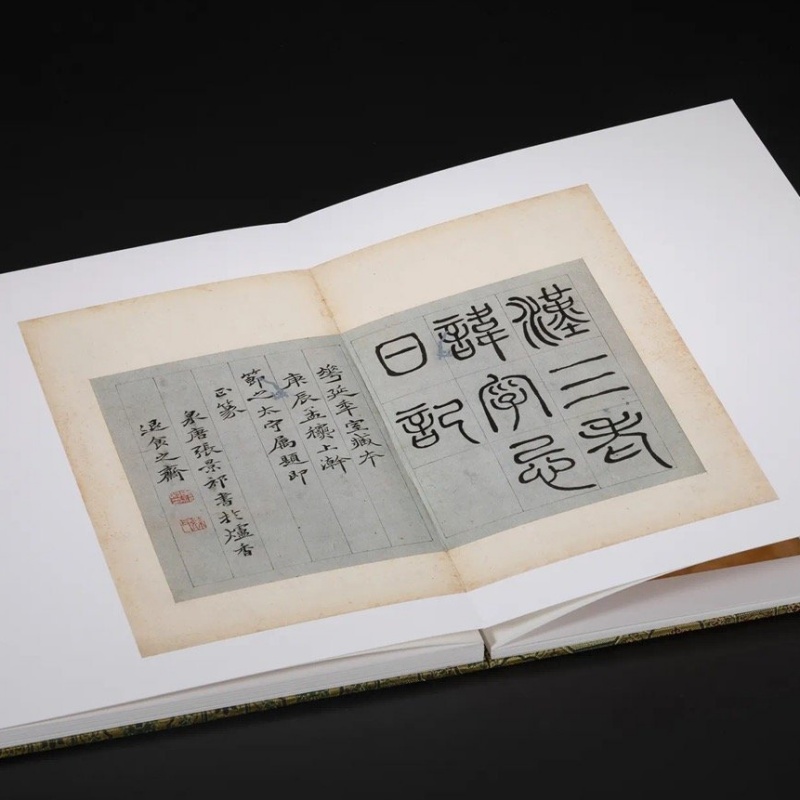 漢三老
諱字忌
日記
華延年室藏本
庚辰孟上澣
節太守属題即
正篆
泉唐張景祁書於爐香
退食之齋